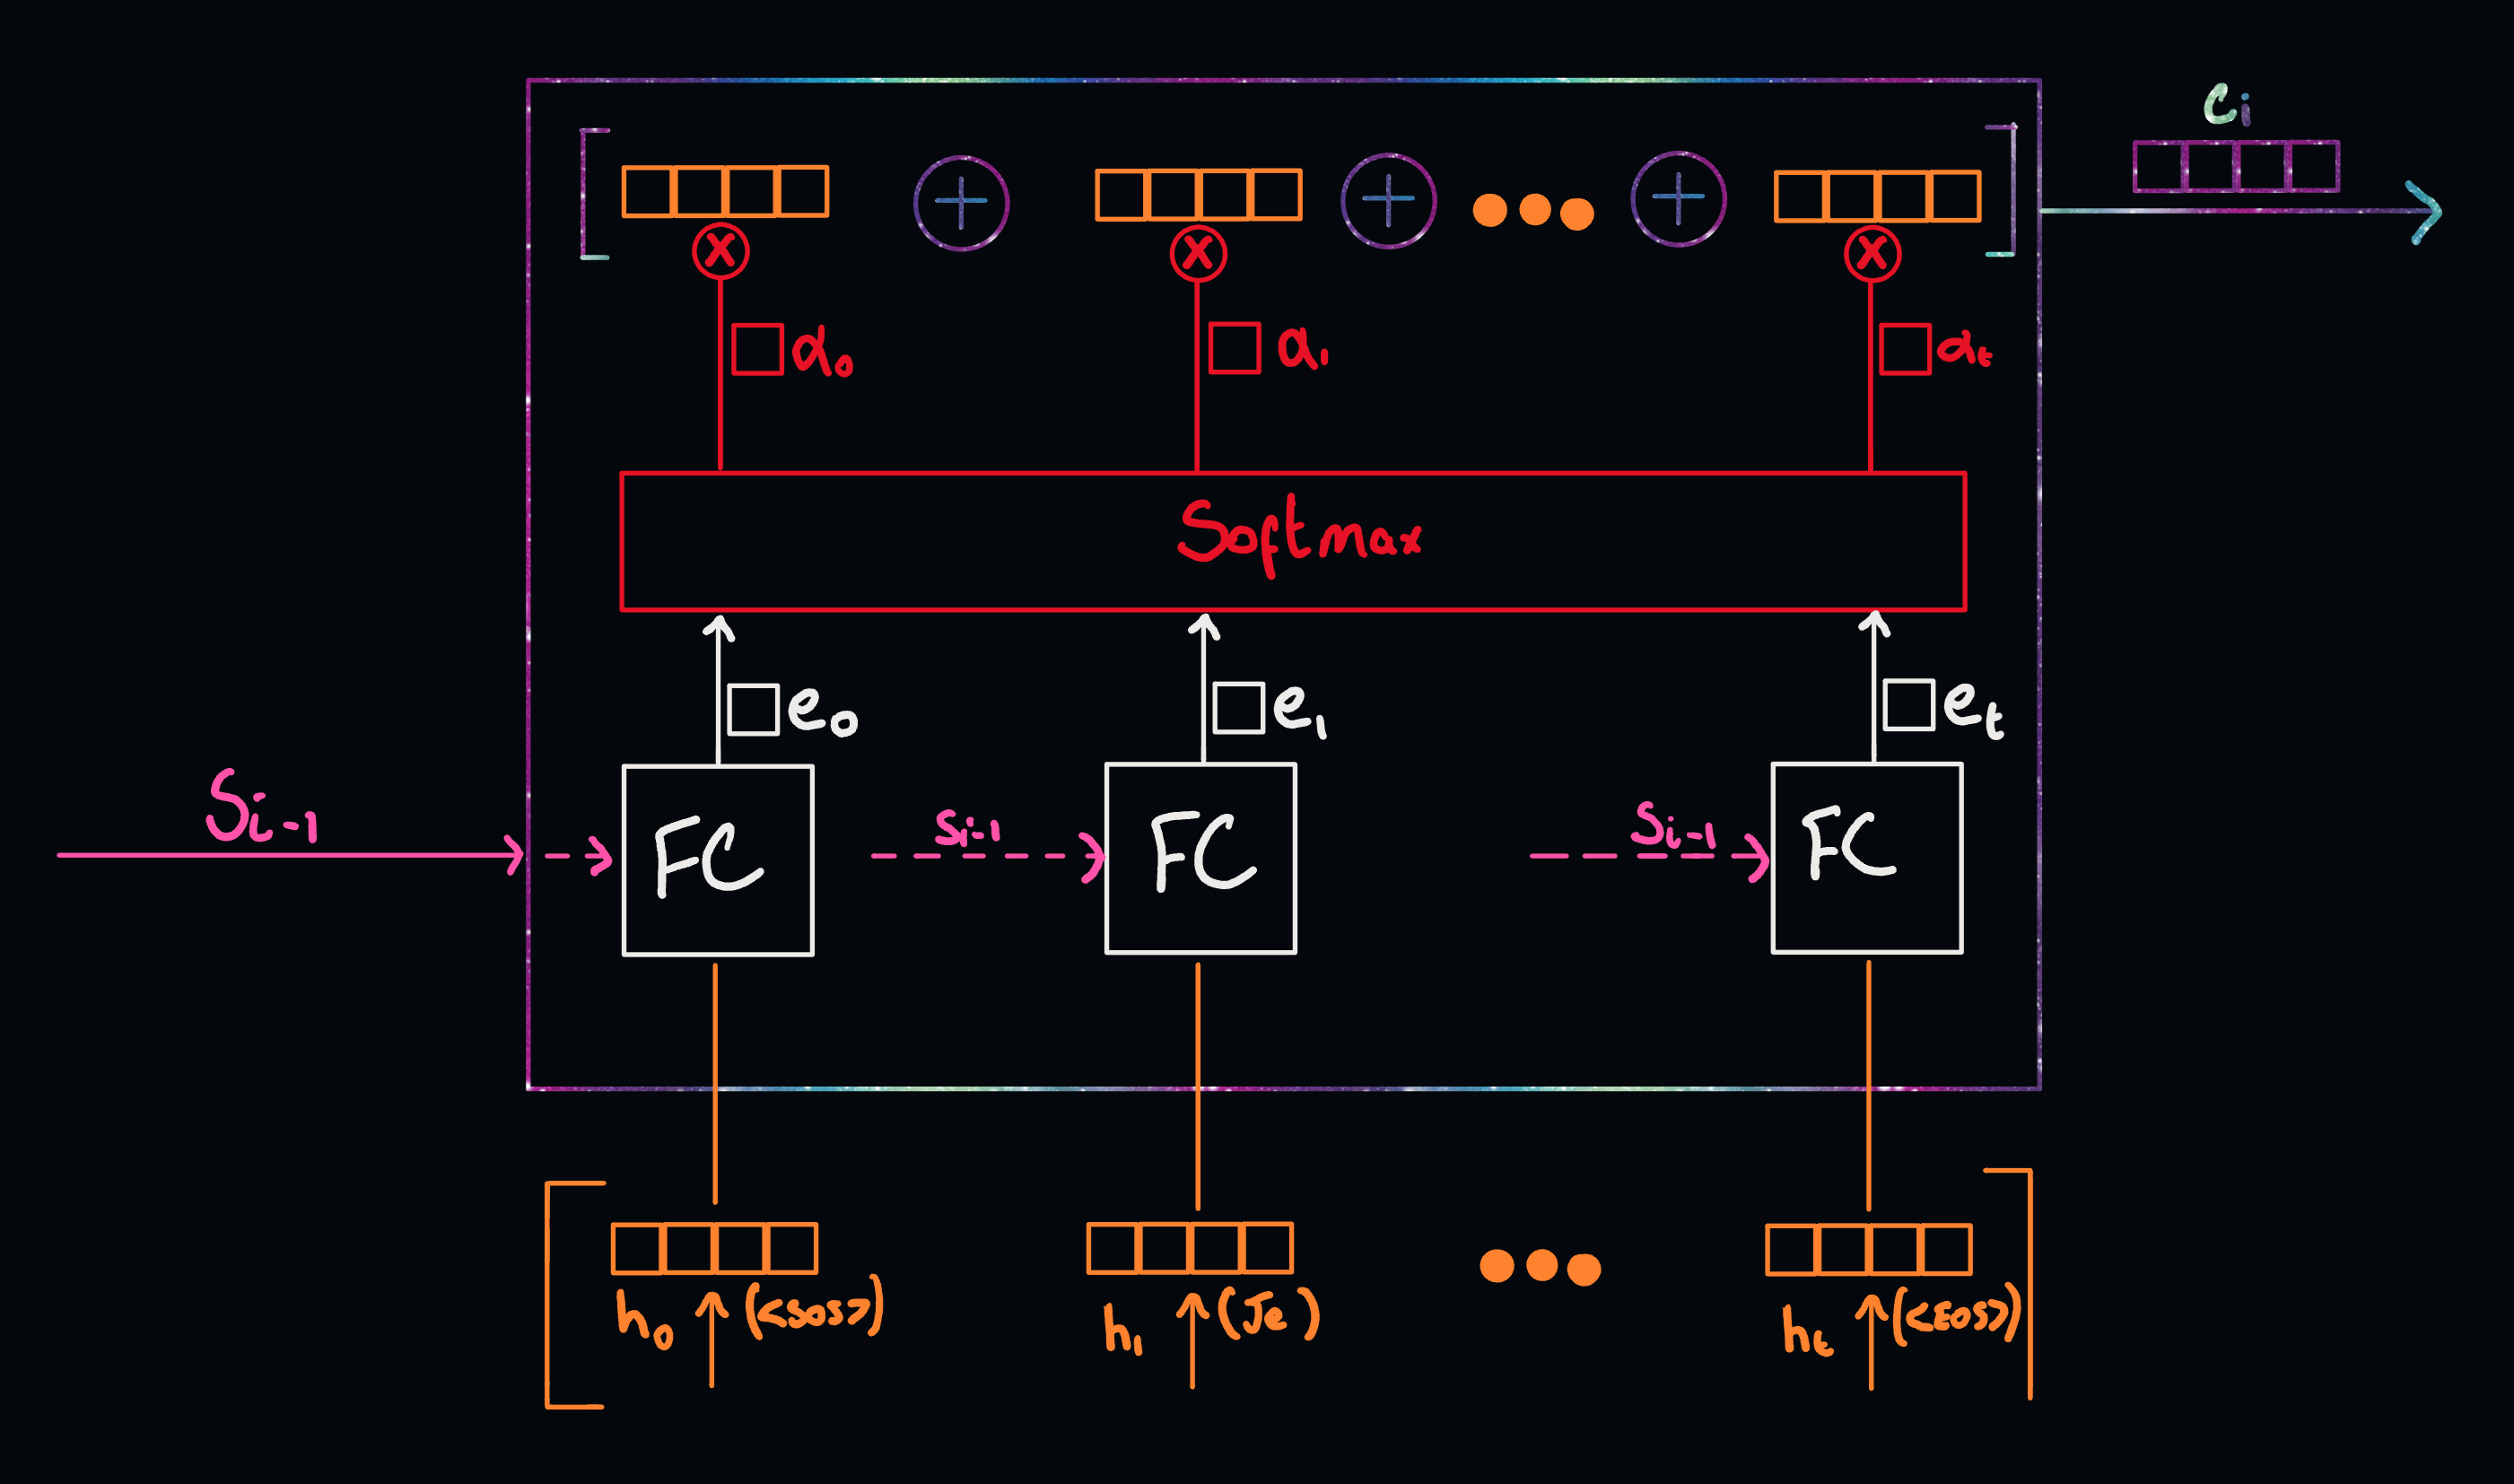 Ci
X X X
α₀ α₁ αₜ
Softmax
e₀ e₁ eₜ
Sᵢ₋₁
Sᵢ₋₁ Sᵢ₋₁
FC FC FC
h₀ (<SOS>) h₁ (Je) hₜ (<EOS>)